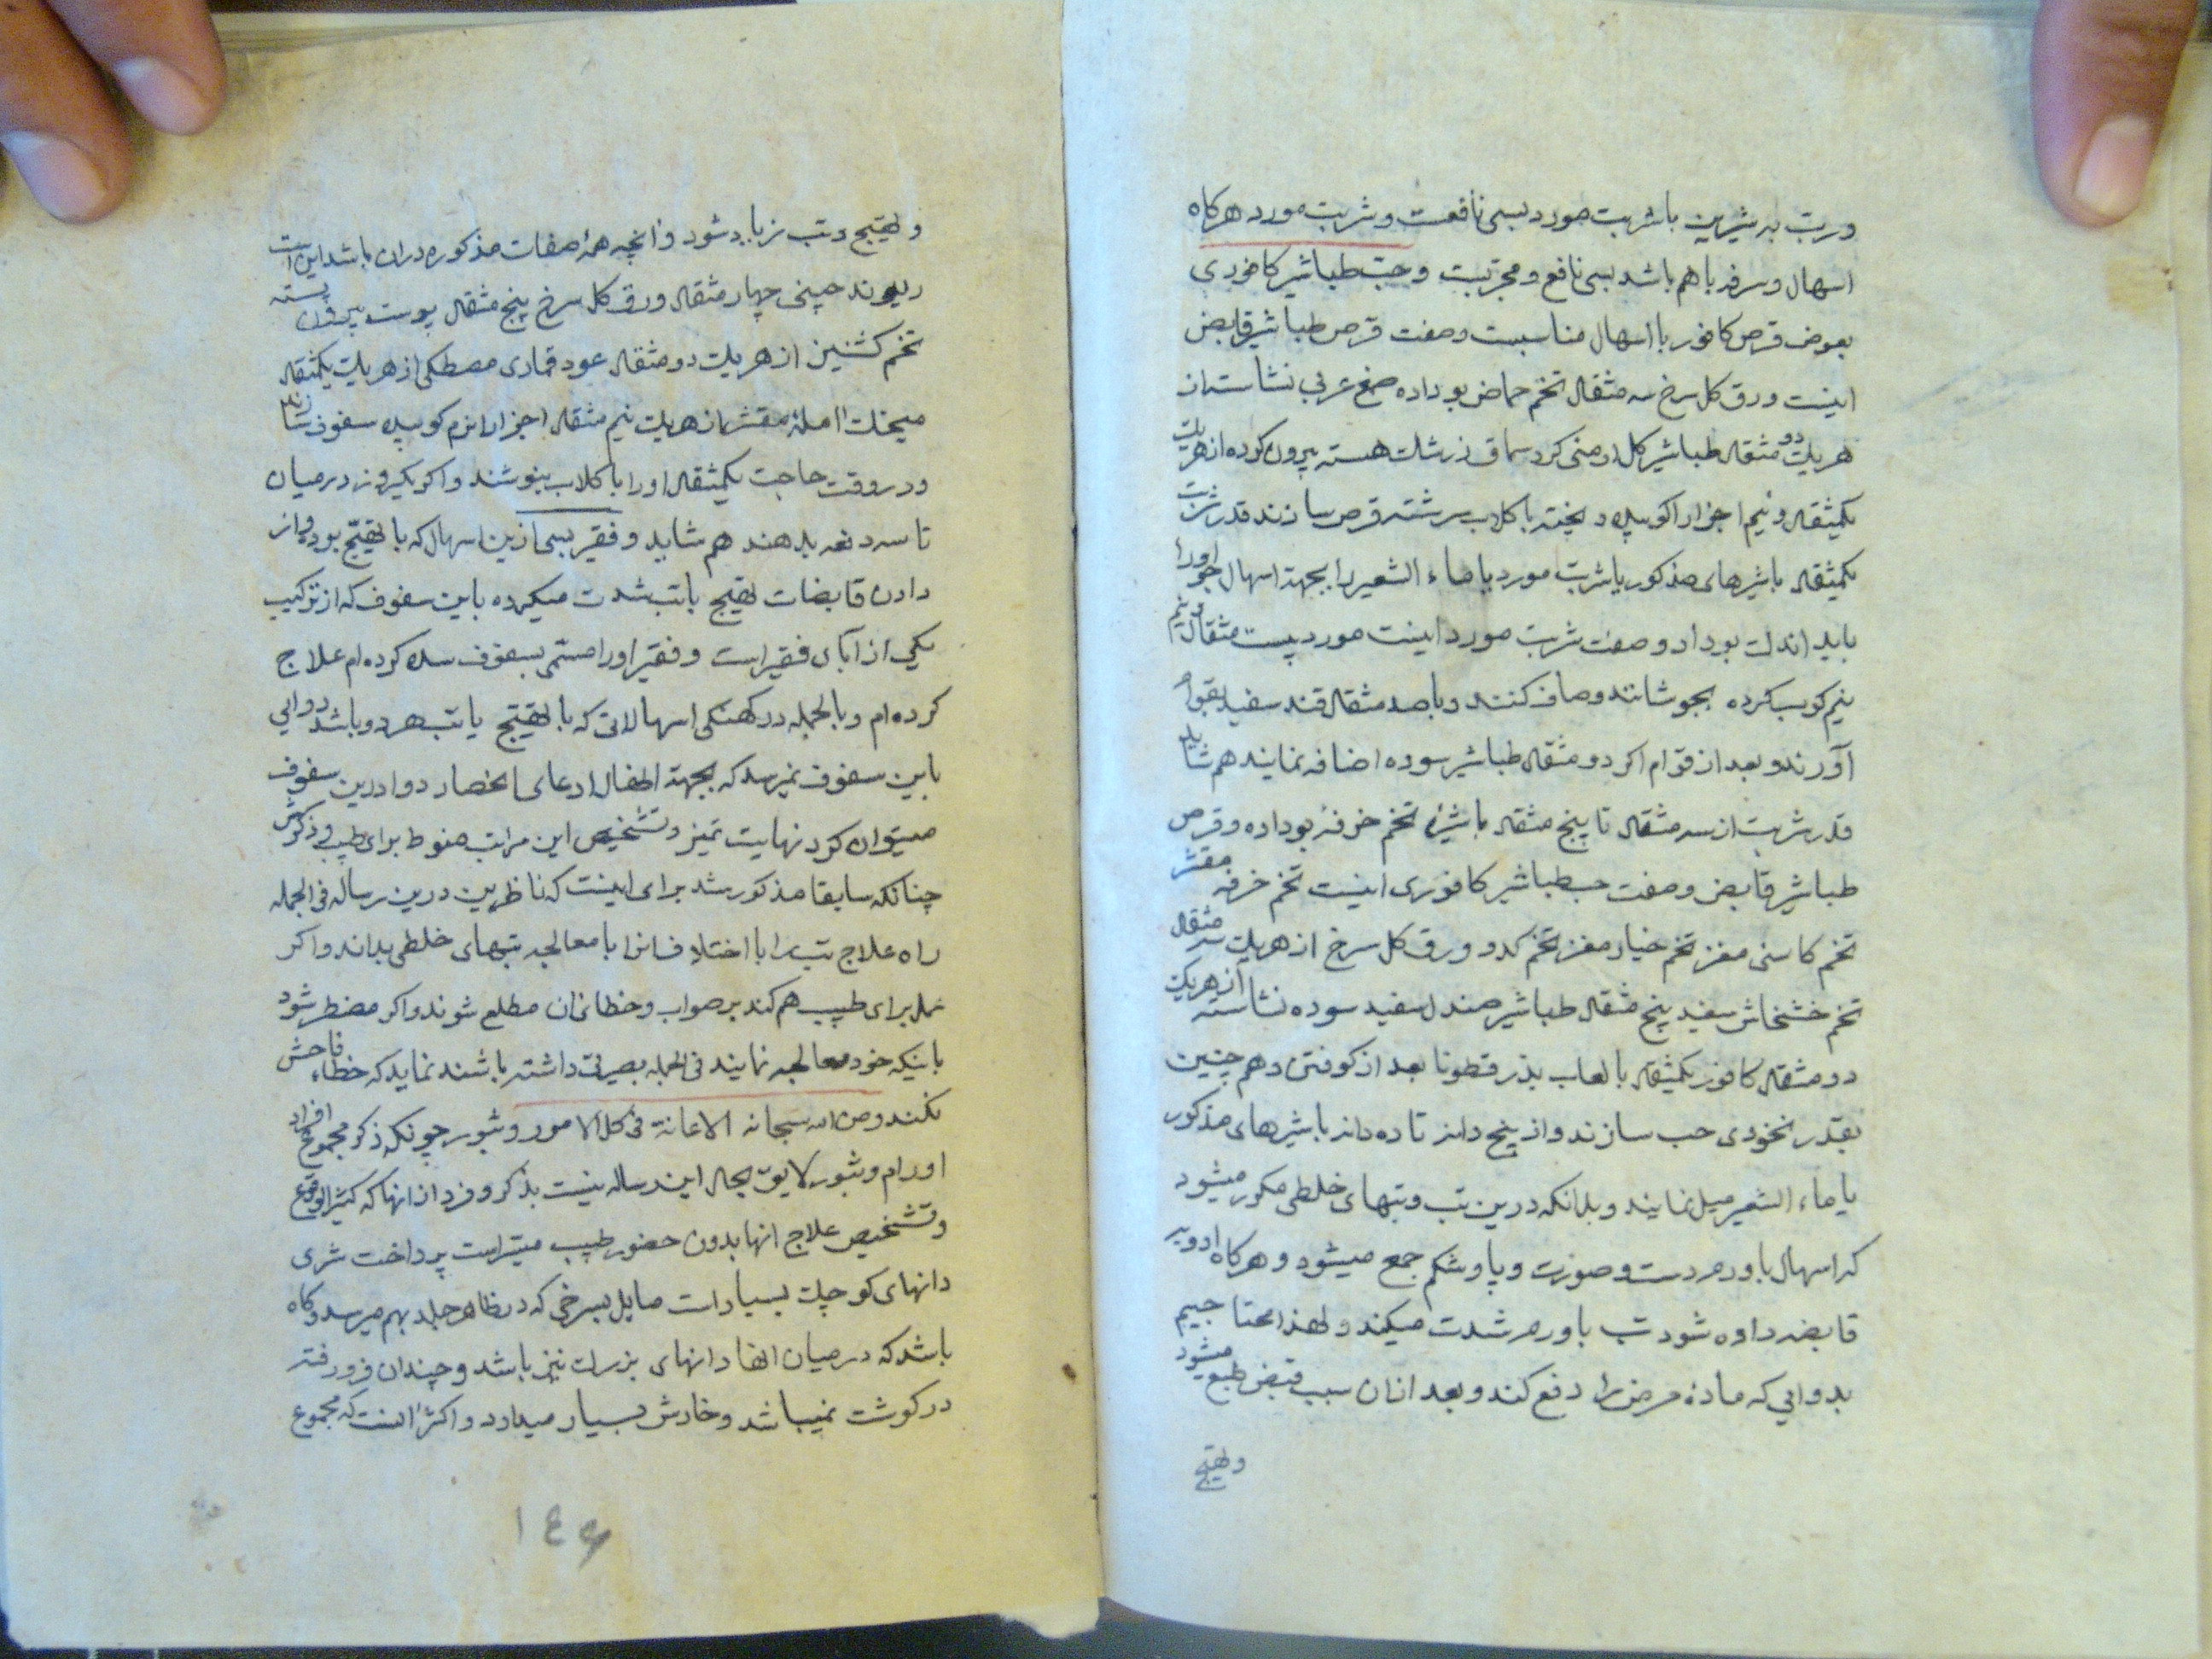 و رب به شیرین با شربت مورد بسی نافعست و شربت مورد هرکاه
اسهال و سرفه باهم باشد بسی نافع و مجربست و حب طباشیر کافوری
بعوض قرص کافور با اسهال مناسبست و صفت قرص طباشیر قابض
اینست ورق کل سرخ سه مثقال تخم حماض بو داده صمغ عربی نشاسته از
هریک دو مثقال طباشیر کل ارمنی کرد سماق زرشک هسته بیرون کرده از هریک
یکمثقال و نیم اجزا را کوبیده و بیخته با کلاب سرشته قرص سازند قدر شربت
یکمثقال با شیرهای مذکور یا شربت مورد یا ماء الشعیر را بجهة اسهال جو را
باید اندک بو داد و صفت شربت مورد اینست مورد بیست مثقال
نیم کوب کرده بجوشانند و صاف کنند و با صد مثقال قند سفید بقوام
آورند و بعد از قوام اکر دو مثقال طباشیر سوده اضافه نمایند هم شاید
قدر شربت از سه مثقال تا پنج مثقال با شیره تخم خرفه بو داده و قرص
طباشیر قابض و صفت حب طباشیر کافوری اینست تخم خرفه مقشر
تخم کاسنی مغز تخم خیار مغز تخم کدو ورق کل سرخ از هریک سه مثقال
تخم خشخاش سفید پنج مثقال طباشیر صندل سفید سوده نشاسته از هریک
دو مثقال کافور یکمثقال با لعاب بذر قطونا بعد از کوفتن و هم چنین
بقدر نخودی حب سازند و از پنج دانه تا ده دانه با شیرهای مذکور
یا ماء الشعیر میل نمایند و بدانکه درین تب و تبهای خلطی مکرر میشود
که اسهال با ورم دست و صورت و پا و شکم جمع میشود و هرکاه ادویه
قابضه داده شود تب با ورم شدت میکند و لهذا محتاجیم
بدوایی که ماده مرض را دفع کند و بعد از ان سبب قبض طبع میشود
و تهیج
و تهیج و تب زیاد شود و انچه همه صفات مذکوره دران باشد این است
ریوند چینی چهار مثقال ورق کل سرخ پنج مثقال پوست بیرون پسته
تخم کشنیز از هریک دو مثقال عود قماری مصطکی از هریک یکمثقال
میخک املۀ مقشر از هریک نیم مثقال اجزا را نرم کوبیده سفوف سازند
و در وقت حاجت یکمثقال او را با کلاب بنوشند و اکر یکروز در میان
تا سه دفعه بدهند هم شاید و فقیر بسی ازین اسهال که با تهیج بوده و از
دادن قابضات تهیج با تب شدت میکرده باین سفوف که از ترکیب
یکی از آبای فقیر است و فقیر او را مسمی بسفوف سده کرده ام علاج
کرده ام و بالجمله در کهنکی اسهالاتی که با تهیج یا تب هر دو باشد دوایی
باین سفوف نمیرسد که بجهة اطفال ادعای انحصار دوا درین سفوف
میتوان کرد نهایت تمیز و تشخیص این مراتب منوط برای طبیب و ذکرش
چنانکه سابقا مذکور شد برای اینست که ناظرین درین رساله فی الجمله
راه علاج تب را با اختلاف انرا با معالجه تبهای خلطی بداند و اکر
عمل برای طبیب هم کند بر صواب و خطای ان مطلع شوند و اکر مضطر شود
باینکه خود معالجه نمایند فی الجمله بصیرتی داشته باشند نماید که خطاء فاحش
نکند و من الله سبحانه الاعانة فی کل الامور و بثور چونکه ذکر مجموع افراد
اورام و بثور لایق بحال این رساله نیست بذکر و فرد از انها که کثیر الوقوع
و تشخیص علاج انها بدون حضور طبیب میسر است پرداخت شری
دانهای کوچک بسیار است مایل بسرخی که در ظاهر جلد بهم میرسد و کاه
باشد که در میان انها دانهای بزرک نیز باشد و چندان فرو رفته
در کوشت نمیباشد و خارش بسیار میدارد و اکثر انست که مجموع